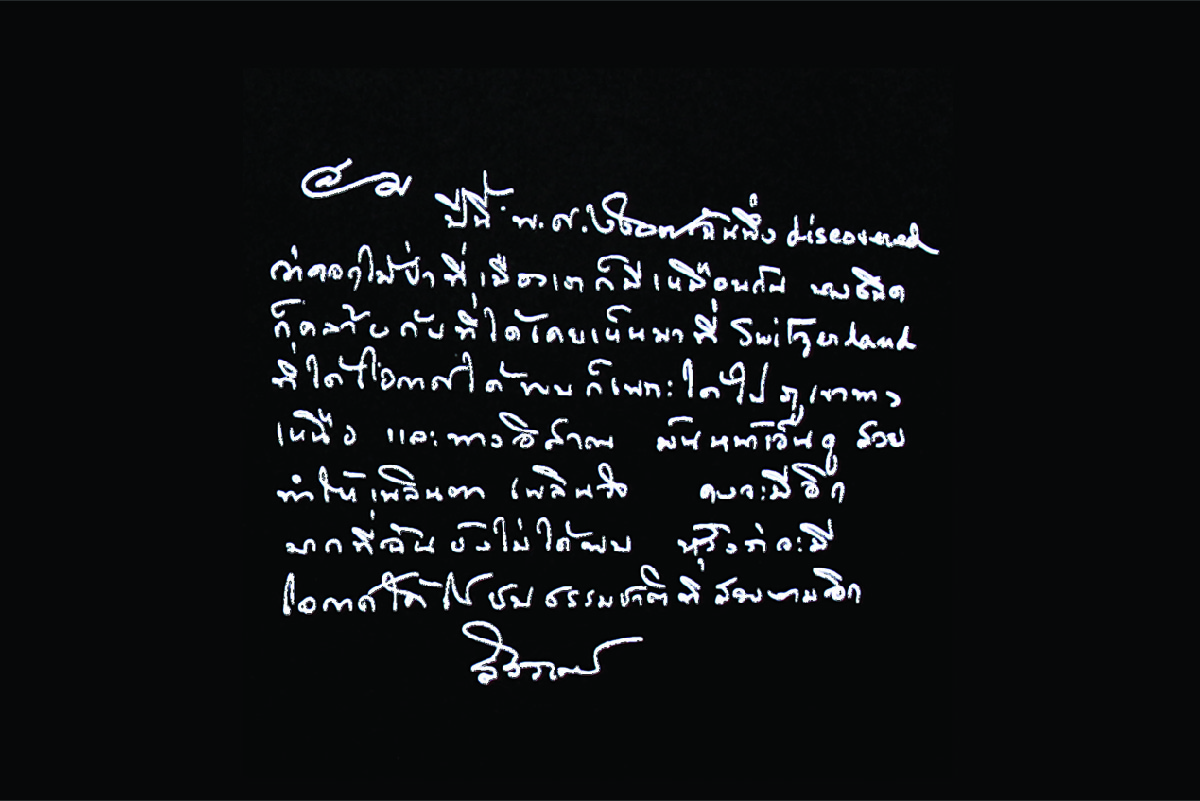 สม
ปีนี้ พ.ศ. ฉันพึ่ง discovered
ว่าดอกไม้ป่าที่เมืองเราก็มีเหมือนกัน บางชนิด
ก็คล้ายกับที่ได้เคยเห็นมาที่ Switzerland
ที่ได้โอกาสได้พบก็เพราะได้ไปภูเขาทาง
เหนือ และทางอิสาณ มันน่าเอ็นดู สวย
ทำให้เพลินตา เพลินใจ คงจะมีอีก
มากที่ฉันยังไม่ได้พบ หวังว่าจะมี
โอกาสได้ไปชมธรรมชาติที่สวยงามอีก